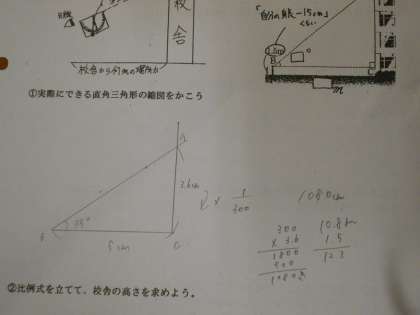 校舎
「自分の眼−15cm」
くらい
1.5m
B
m
校舎から何mの場所か
①実際にできる直角三角形の縮図をかこう
3.6cm
35°
5cm
C
ℓ × 1/300
1080cm
300
× 3.6
1800
900
1080.0
10.8m
1.5
12.3
②比例式を立てて、校舎の高さを求めよう。